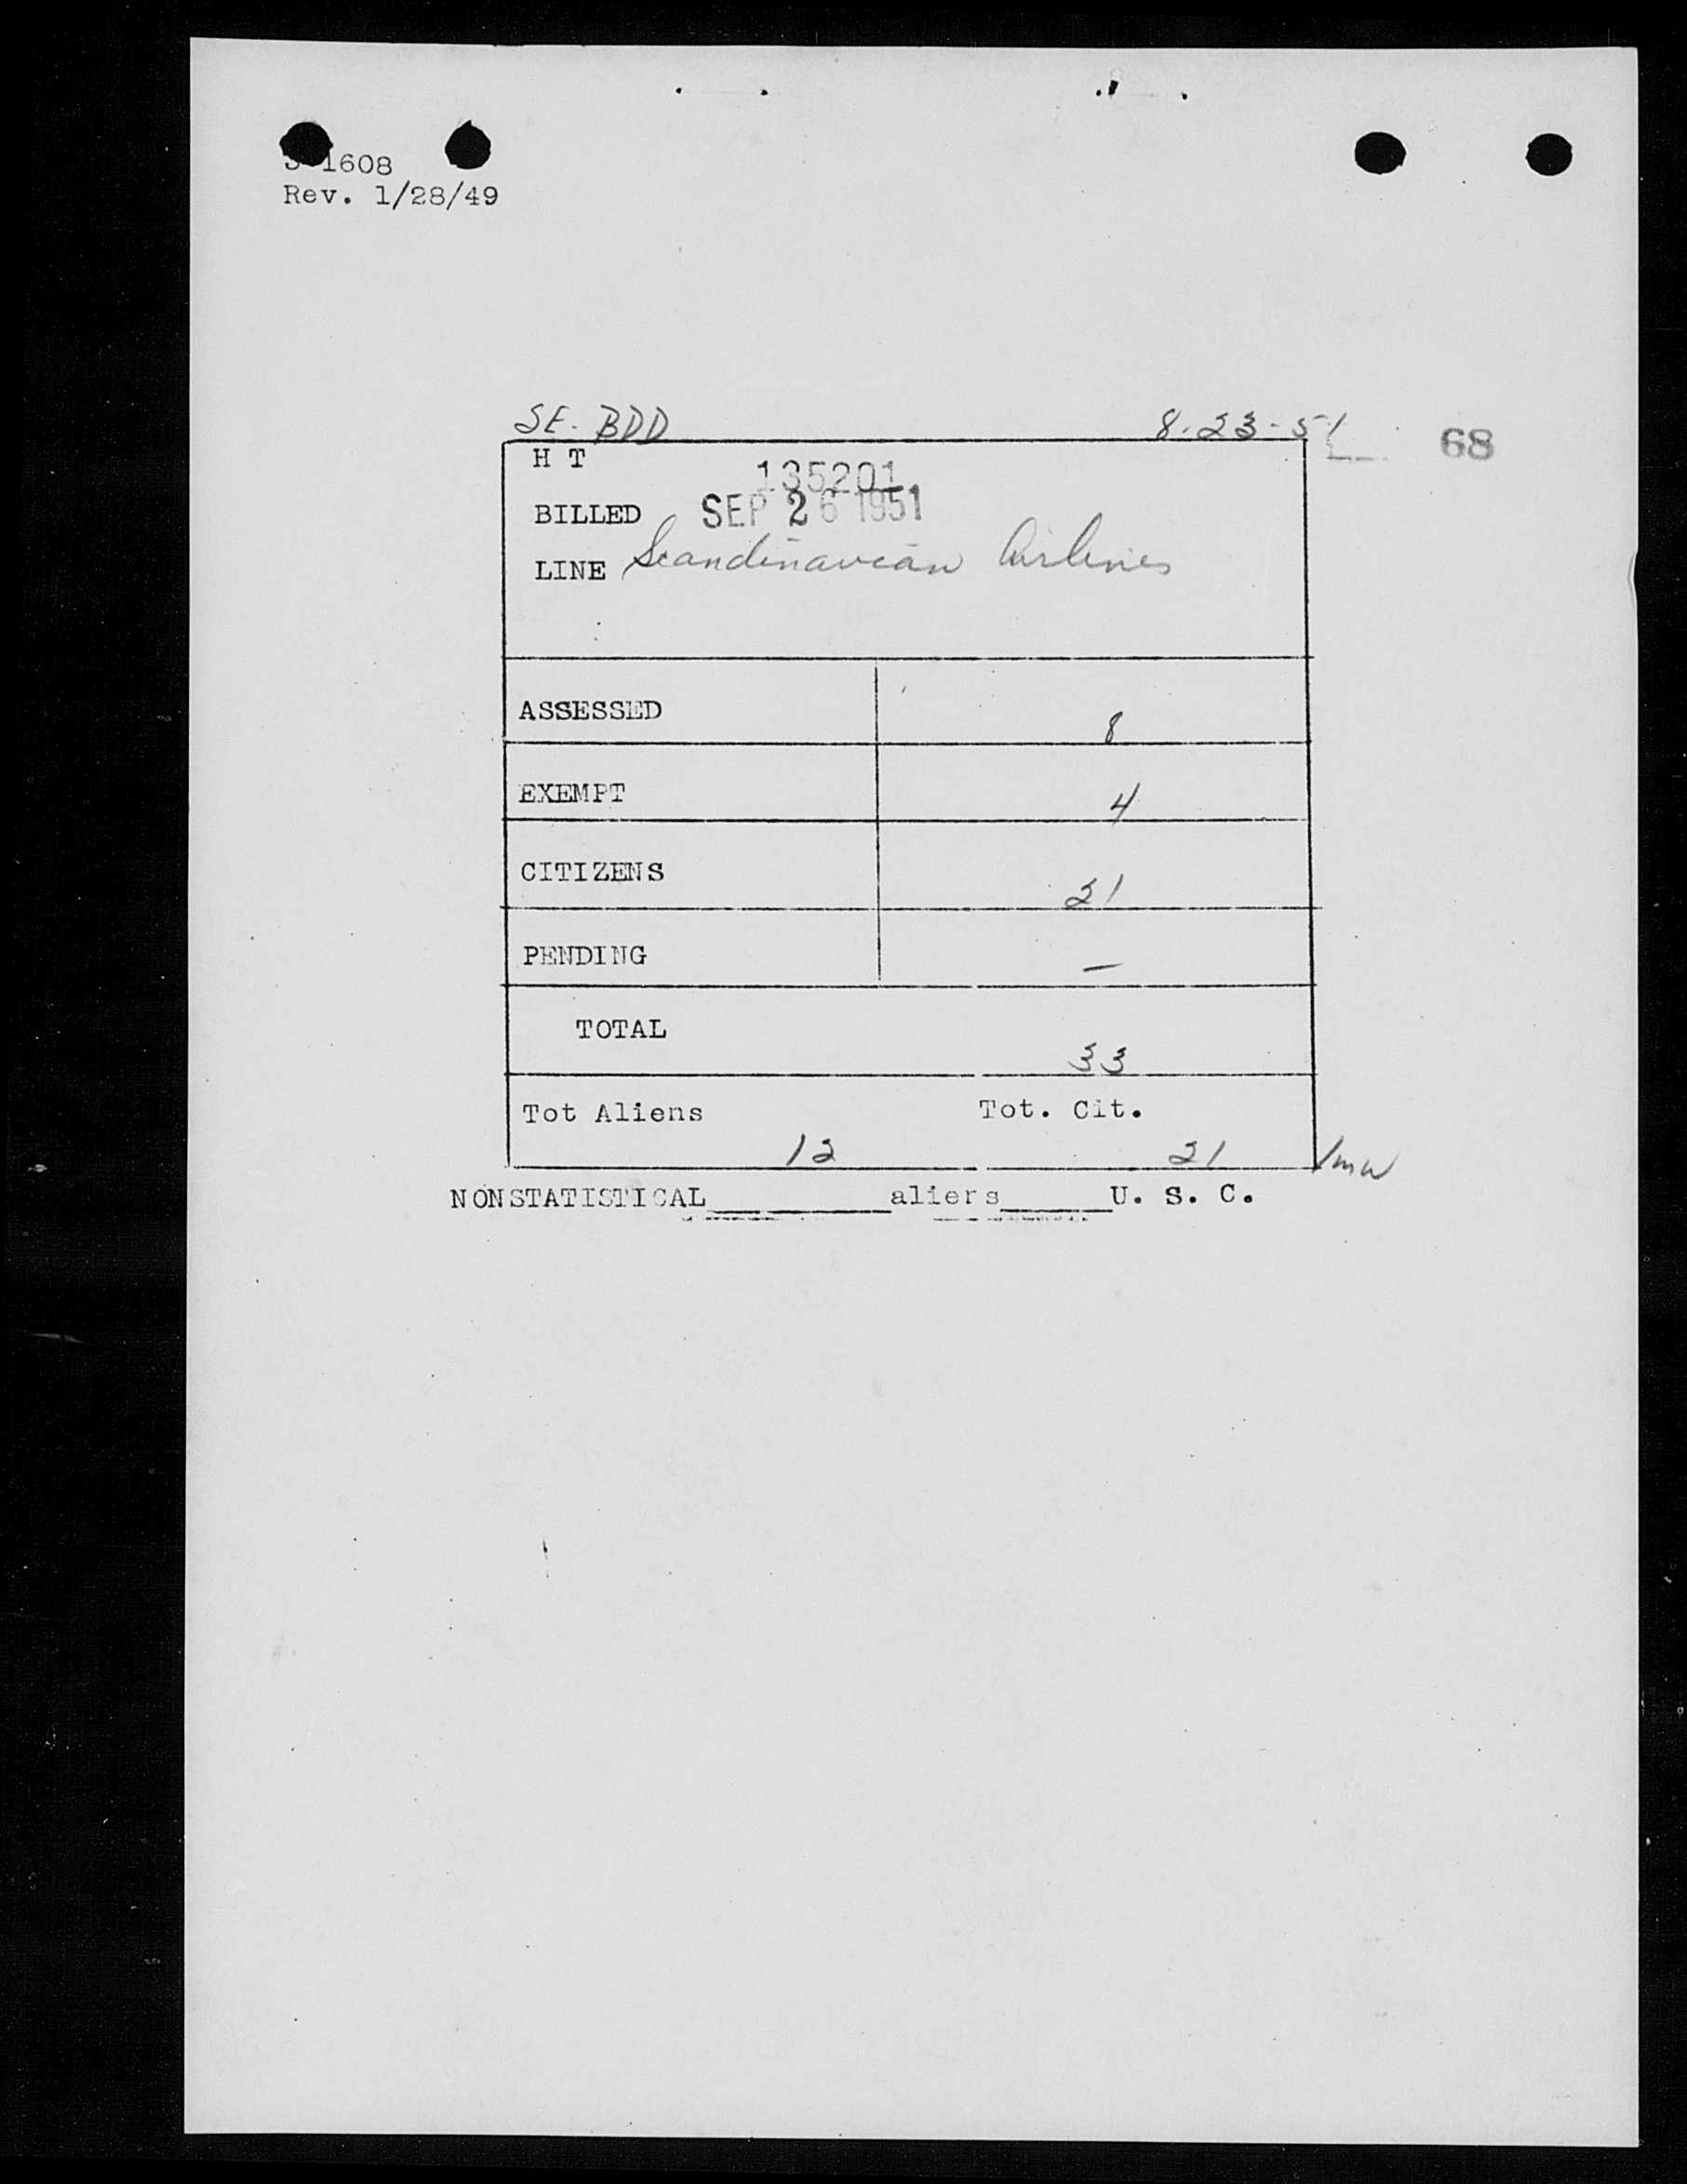 1608
Rev. 1/28/49
SE-BDD 8-23-51
68
H T 135201
BILLED SEP 26 1951
LINE Scandinavian Airlines
ASSESSED 8
EXEMPT 4
CITIZENS 21
PENDING —
TOTAL 33
Tot Aliens 12 Tot. Cit. 21
NONSTATISTICAL__________aliens______U. S. C.